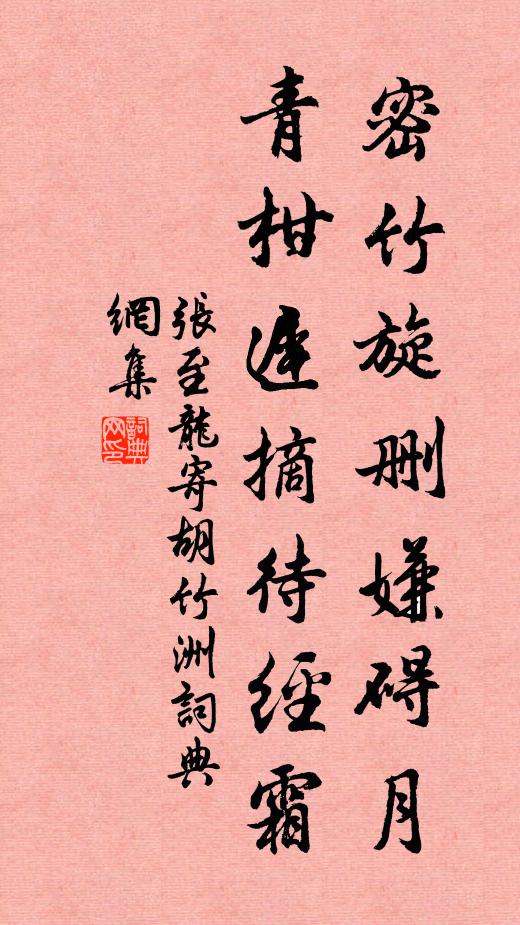 密竹旋刪嫌碍月
青柑遲摘待經霜
張至龍寄胡竹洲詞典
網集
詞典網印